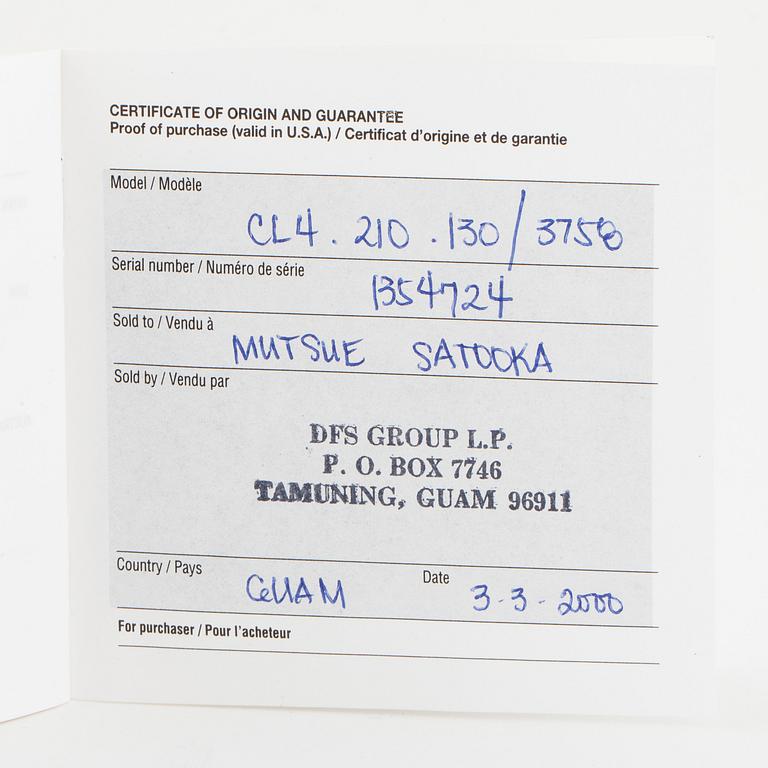 CERTIFICATE OF ORIGIN AND GUARANTEE
Proof of purchase (valid in U.S.A.) / Certificat d'origine et de garantie
Model / Modèle
CL4 . 210 . 130 / 3758
Serial number / Numéro de série
1354724
Sold to / Vendu à
MUTSUE SATOOKA
Sold by / Vendu par
DFS GROUP L.P.
P. O. BOX 7746
TAMUNING, GUAM 96911
Country / Pays
GUAM
Date
3-3-2000
For purchaser / Pour l'acheteur